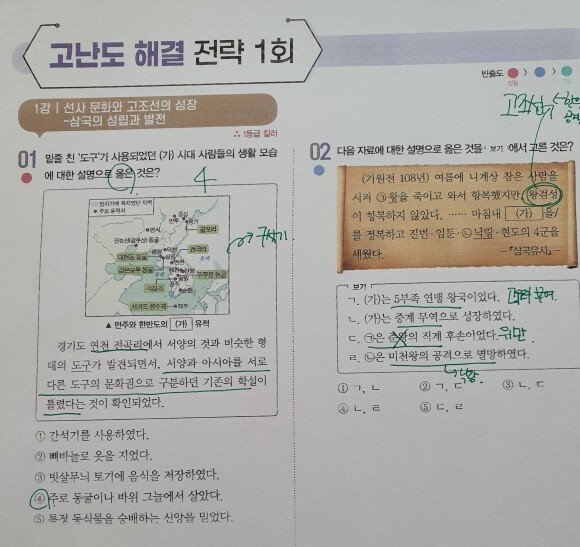 고난도 해결 전략 1회
빈출도
1강 | 선사 문화와 고조선의 성장
~삼국의 성립과 발전
∴ 1등급 킬러
01 밑줄 친 '도구'가 사용되었던 (가) 시대 사람들의 생활 모습
에 대한 설명으로 옳은 것은?
4
주요 유적지
동관진
굴포리
만달리
덕천
평양
전곡리
대현동 동굴
검은모루 동굴
두루봉 동굴
석장리
공주
단양
제주
구석기
▲ 만주와 한반도의 (가) 유적
경기도 연천 전곡리에서 서양의 것과 비슷한 형
태의 도구가 발견되면서, 서양과 아시아를 서로
다른 도구의 문화권으로 구분하던 기존의 학설이
틀렸다는 것이 확인되었다.
① 간석기를 사용하였다.
② 뼈바늘로 옷을 지었다.
③ 빗살무늬 토기에 음식을 저장하였다.
④ 주로 동굴이나 바위 그늘에서 살았다.
⑤ 특정 동식물을 숭배하는 신앙을 믿었다.
고조선
02 다음 자료에 대한 설명으로 옳은 것을 보기 에서 고른 것은?
(기원전 108년) 여름에 니계상 참은 사람을
시켜 ㉠왕을 죽이고 와서 항복했지만, 왕검성
이 항복하지 않았다. …… 마침내 (가) 을/
를 정복하고 진번·임둔·㉡낙랑·현도의 4군을
세웠다.
-『삼국유사』-
보기
ㄱ. (가)는 5부족 연맹 왕국이었다. 고구려 부여
ㄴ. (가)는 중계 무역으로 성장하였다.
ㄷ. ㉠은 준왕의 직계 후손이었다. 위만
ㄹ. ㉡은 미천왕의 공격으로 멸망하였다.
낙랑
① ㄱ, ㄴ ② ㄱ, ㄷ ③ ㄴ, ㄷ
④ ㄴ, ㄹ ⑤ ㄷ, ㄹ